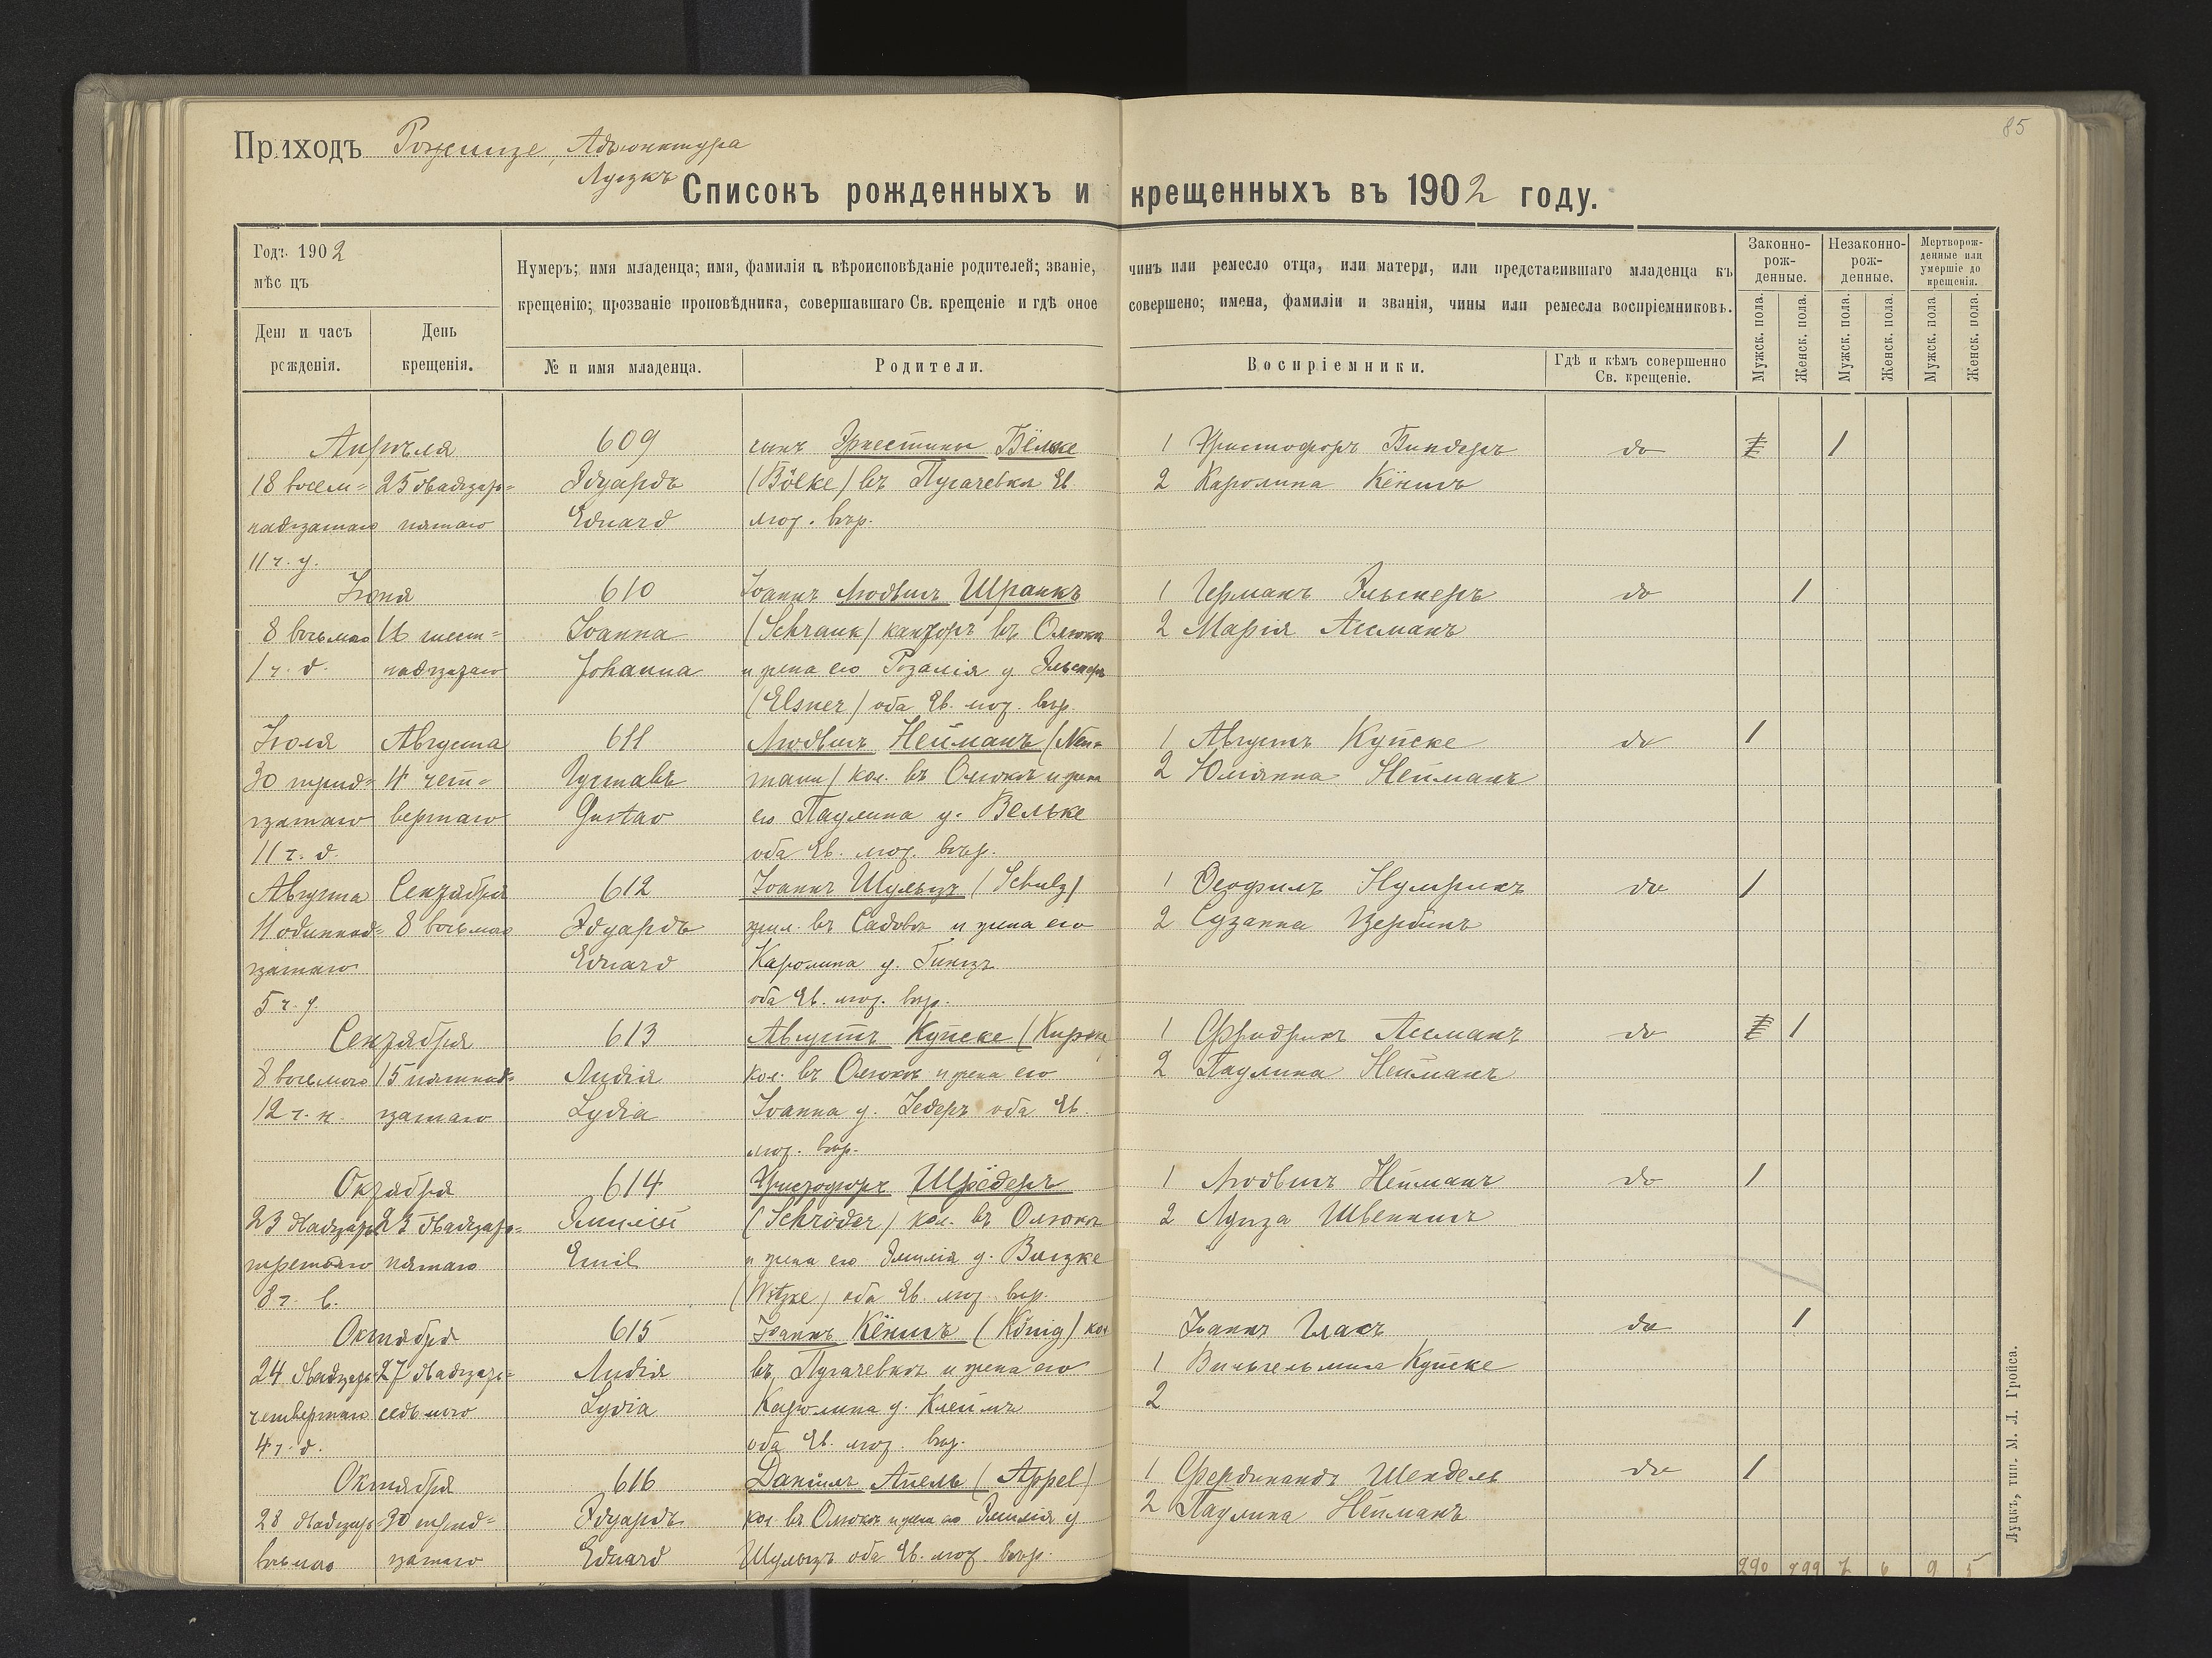 85
Приходъ Рожище, Адъюнктура
Луцкъ
Списокъ рожденныхъ и крещенныхъ въ 1902 году.
Годъ 1902
мѣс цъ
День и часъ
рожденія.
День
крещенія.
Нумеръ; имя младенца; имя, фамилія и вѣроисповѣданіе родителей; званіе, чинъ или ремесло отца, или матери, или представившаго младенца къ
крещенію; прозваніе проповѣдника, совершавшаго Св. крещеніе и гдѣ оное совершено; имена, фамиліи и званія, чины или ремесла воспріемниковъ.
№ и имя младенца.
Родители.
Воспріемники.
Гдѣ и кѣмъ совершенно
Св. крещеніе.
Законно-
рож-
денные.
Незаконно-
рож-
денные.
Мертворож-
денные или
умершіе до
крещенія.
Мужск. пола.
Женск. пола.
Мужск. пола.
Женск. пола.
Мужск. пола
Женск. пола.
Апрѣля 609 сынъ Эрнестины Бёльке 1 Христофоръ Биндеръ do 1
18 восем= 25 двадцать= Эдуардъ (Bölke) въ Пугачевкѣ Ев. 2 Каролина Кёнигъ
надцатаго пятаго Eduard лют. вѣр.
11 ч. у.
Іюня 610 Іоаннъ Людвигъ Шранкъ 1 Германъ Эльснеръ do 1
8 восьмаго 16 шест= Іоанна (Schrank) канторъ въ Олюкѣ 2 Марія Ассманъ
1 ч. д. надцатаго Johanna и жена его Розалія у. Эльснеръ
(Elsner) оба Ев. лют. вѣр.
Іюля Августа 611 Людвигъ Нейманъ (Neu= 1 Августъ Купске do 1
30 трид= 4 чет= Густавъ mann) кол. въ Олюкѣ и жена 2 Юліанна Нейманъ
цатаго вертаго Gustav его Паулина у. Вельке
11 ч. д. оба Ев. лют. вѣр.
Августа Сентября 612 Іоаннъ Шульцъ (Schulz) 1 Теофилъ do 1
11 одиннад= 8 восьмаго Эдуардъ жил. въ Садовѣ и жена его 2 Сузанна Цербинъ
цатаго Eduard Каролина у. Гинцъ
5 ч. у. оба Ев. лют. вѣр.
Сентября 613 Августъ Купске (Kupske 1 Фридрихъ Ассманъ do 1
8 восьмого 15 пятнад= Лидія кол. въ Олюкѣ и жена его 2 Паулина Нейманъ
12 ч. н. цатаго Lydia Іоанна у. Зедеръ оба Ев.
лют. вѣр.
Октября 614 Христофоръ Шрёдеръ 1 Людвигъ Нейманъ do 1
23 двадцать 25 двадцать= Эмилій (Schröder) кол. въ Олюкѣ 2 Луиза Швенкигъ
третьяго пятаго Emil и жена его Эмилія у. Вицке
8 ч. в. (Witzke) оба Ев. лют. вѣр.
Октября 615 Іоаннъ Кёнигъ (König) кол Іоаннъ Гласъ do 1
24 двадцать 27 двадцать= Лидія въ Пугачевкѣ и жена его 1 Вильгельмина Купске
четвертаго седьмого Lydia Каролина у. Клеймъ 2
4 ч. д. оба Ев. лют. вѣр.
Октября 616 Даніилъ Апель (Appel) 1 Фердинандъ Шендель do 1
28 двадцать= 30 трид= Эдуардъ кол. въ Олюкѣ и жена его Эмилія у 2 Паулина Нейманъ
восьмаго цатаго Eduard Шульцъ оба Ев. лют. вѣр.
290 299 7 6 9 5
Луцкъ, тип. М. Л. Гройса.